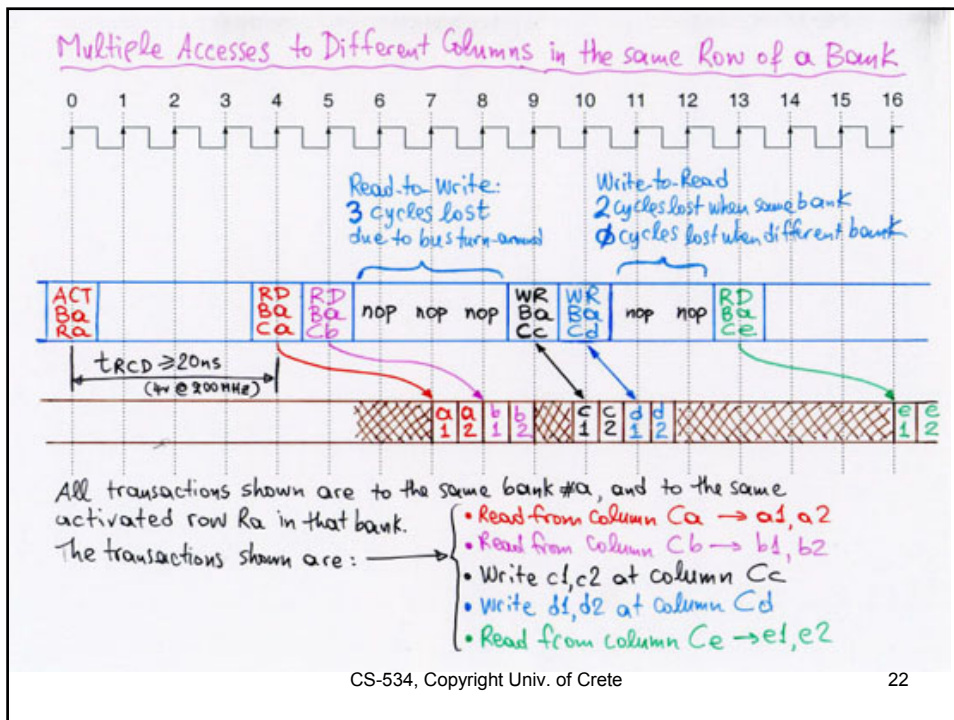 Multiple Accesses to Different Columns in the same Row of a Bank
0 1 2 3 4 5 6 7 8 9 10 11 12 13 14 15 16
Read-to-Write:
3 cycles lost
due to bus turn-around
Write-to-Read
2 cycles lost when same bank
0 cycles lost when different bank
ACT Ba Ra
RD Ba Ca
RD Ba Cb
nop nop nop
WR Ba Cc
WR Ba Cd
nop nop
RD Ba Ce
tRCD ≥20ns
(4~ @ 200MHz)
a1 a2 b1 b2 c1 c2 d1 d2 e1 e2
All transactions shown are to the same bank #a, and to the same
activated row Ra in that bank.
The transactions shown are:
• Read from column Ca → a1, a2
• Read from column Cb → b1, b2
• Write c1,c2 at column Cc
• Write d1,d2 at column Cd
• Read from column Ce → e1, e2
CS-534, Copyright Univ. of Crete
22